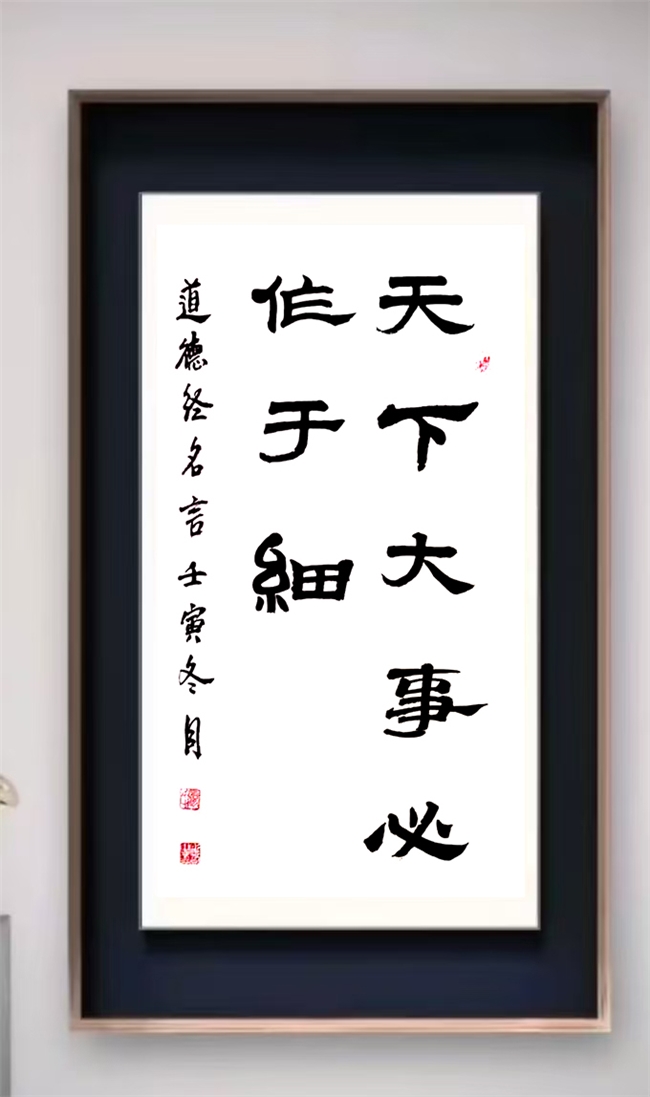 天下大事必
作于细
道德经名言壬寅冬月